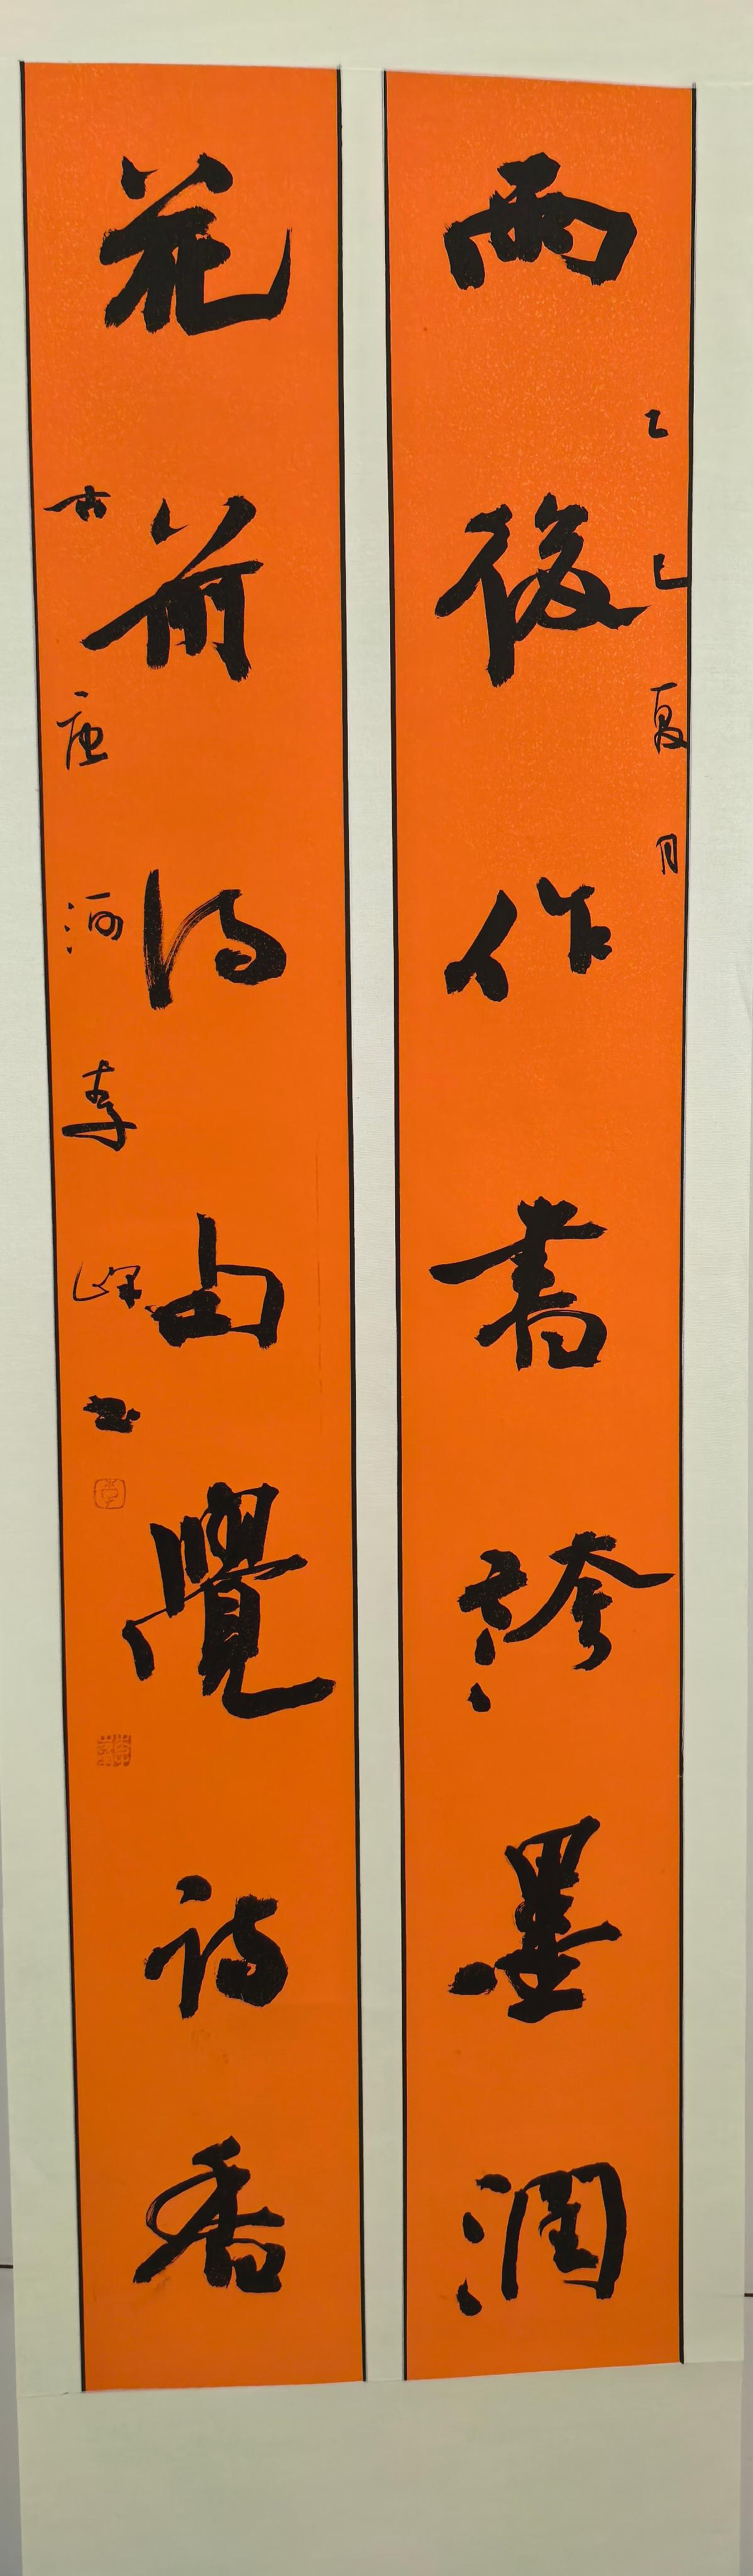 雨後作書誇墨潤
乙巳夏月
花前得句覺詩香
古唐河李峰書